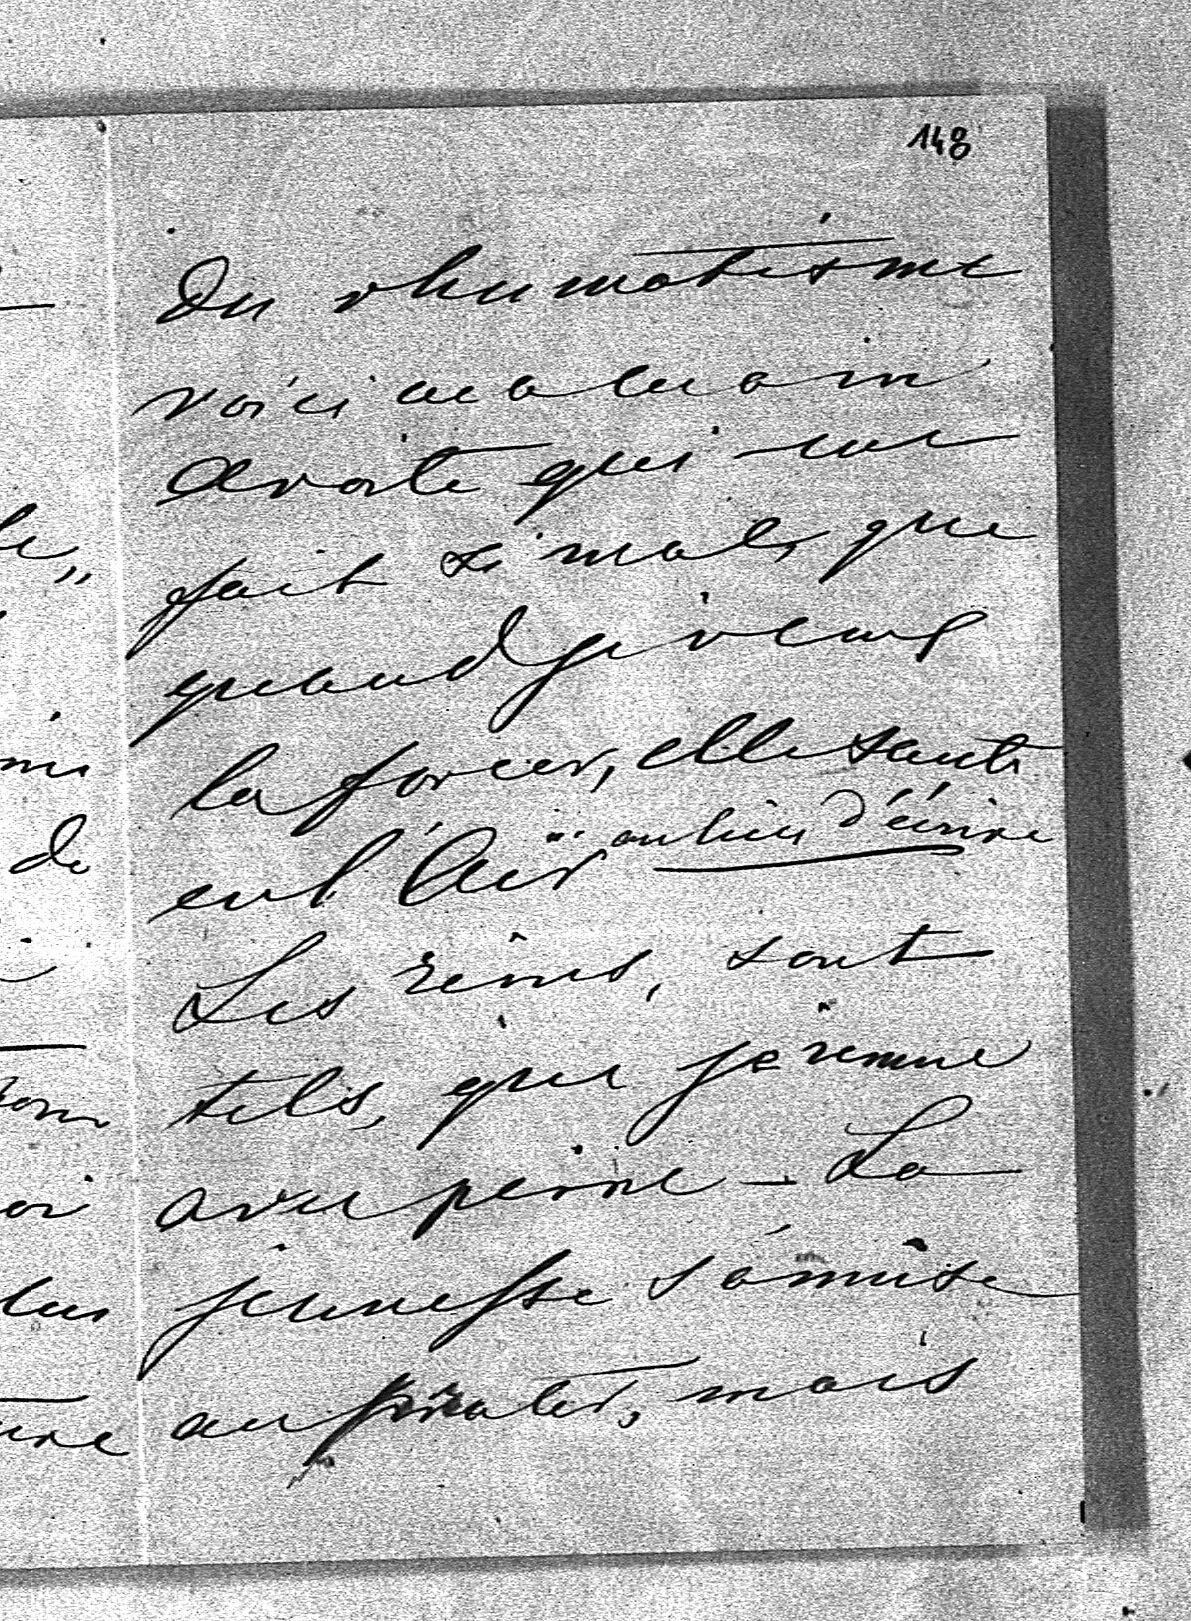 148
du rhumatisme
voici ma main
droite qui me
fait si mal, que
quand je veux
la forcer, elle saute
en l'Air au lieu d'écrire
Les reins, sont
tels, que je remue
avec peine - La
jeunesse s'amuse
au mais